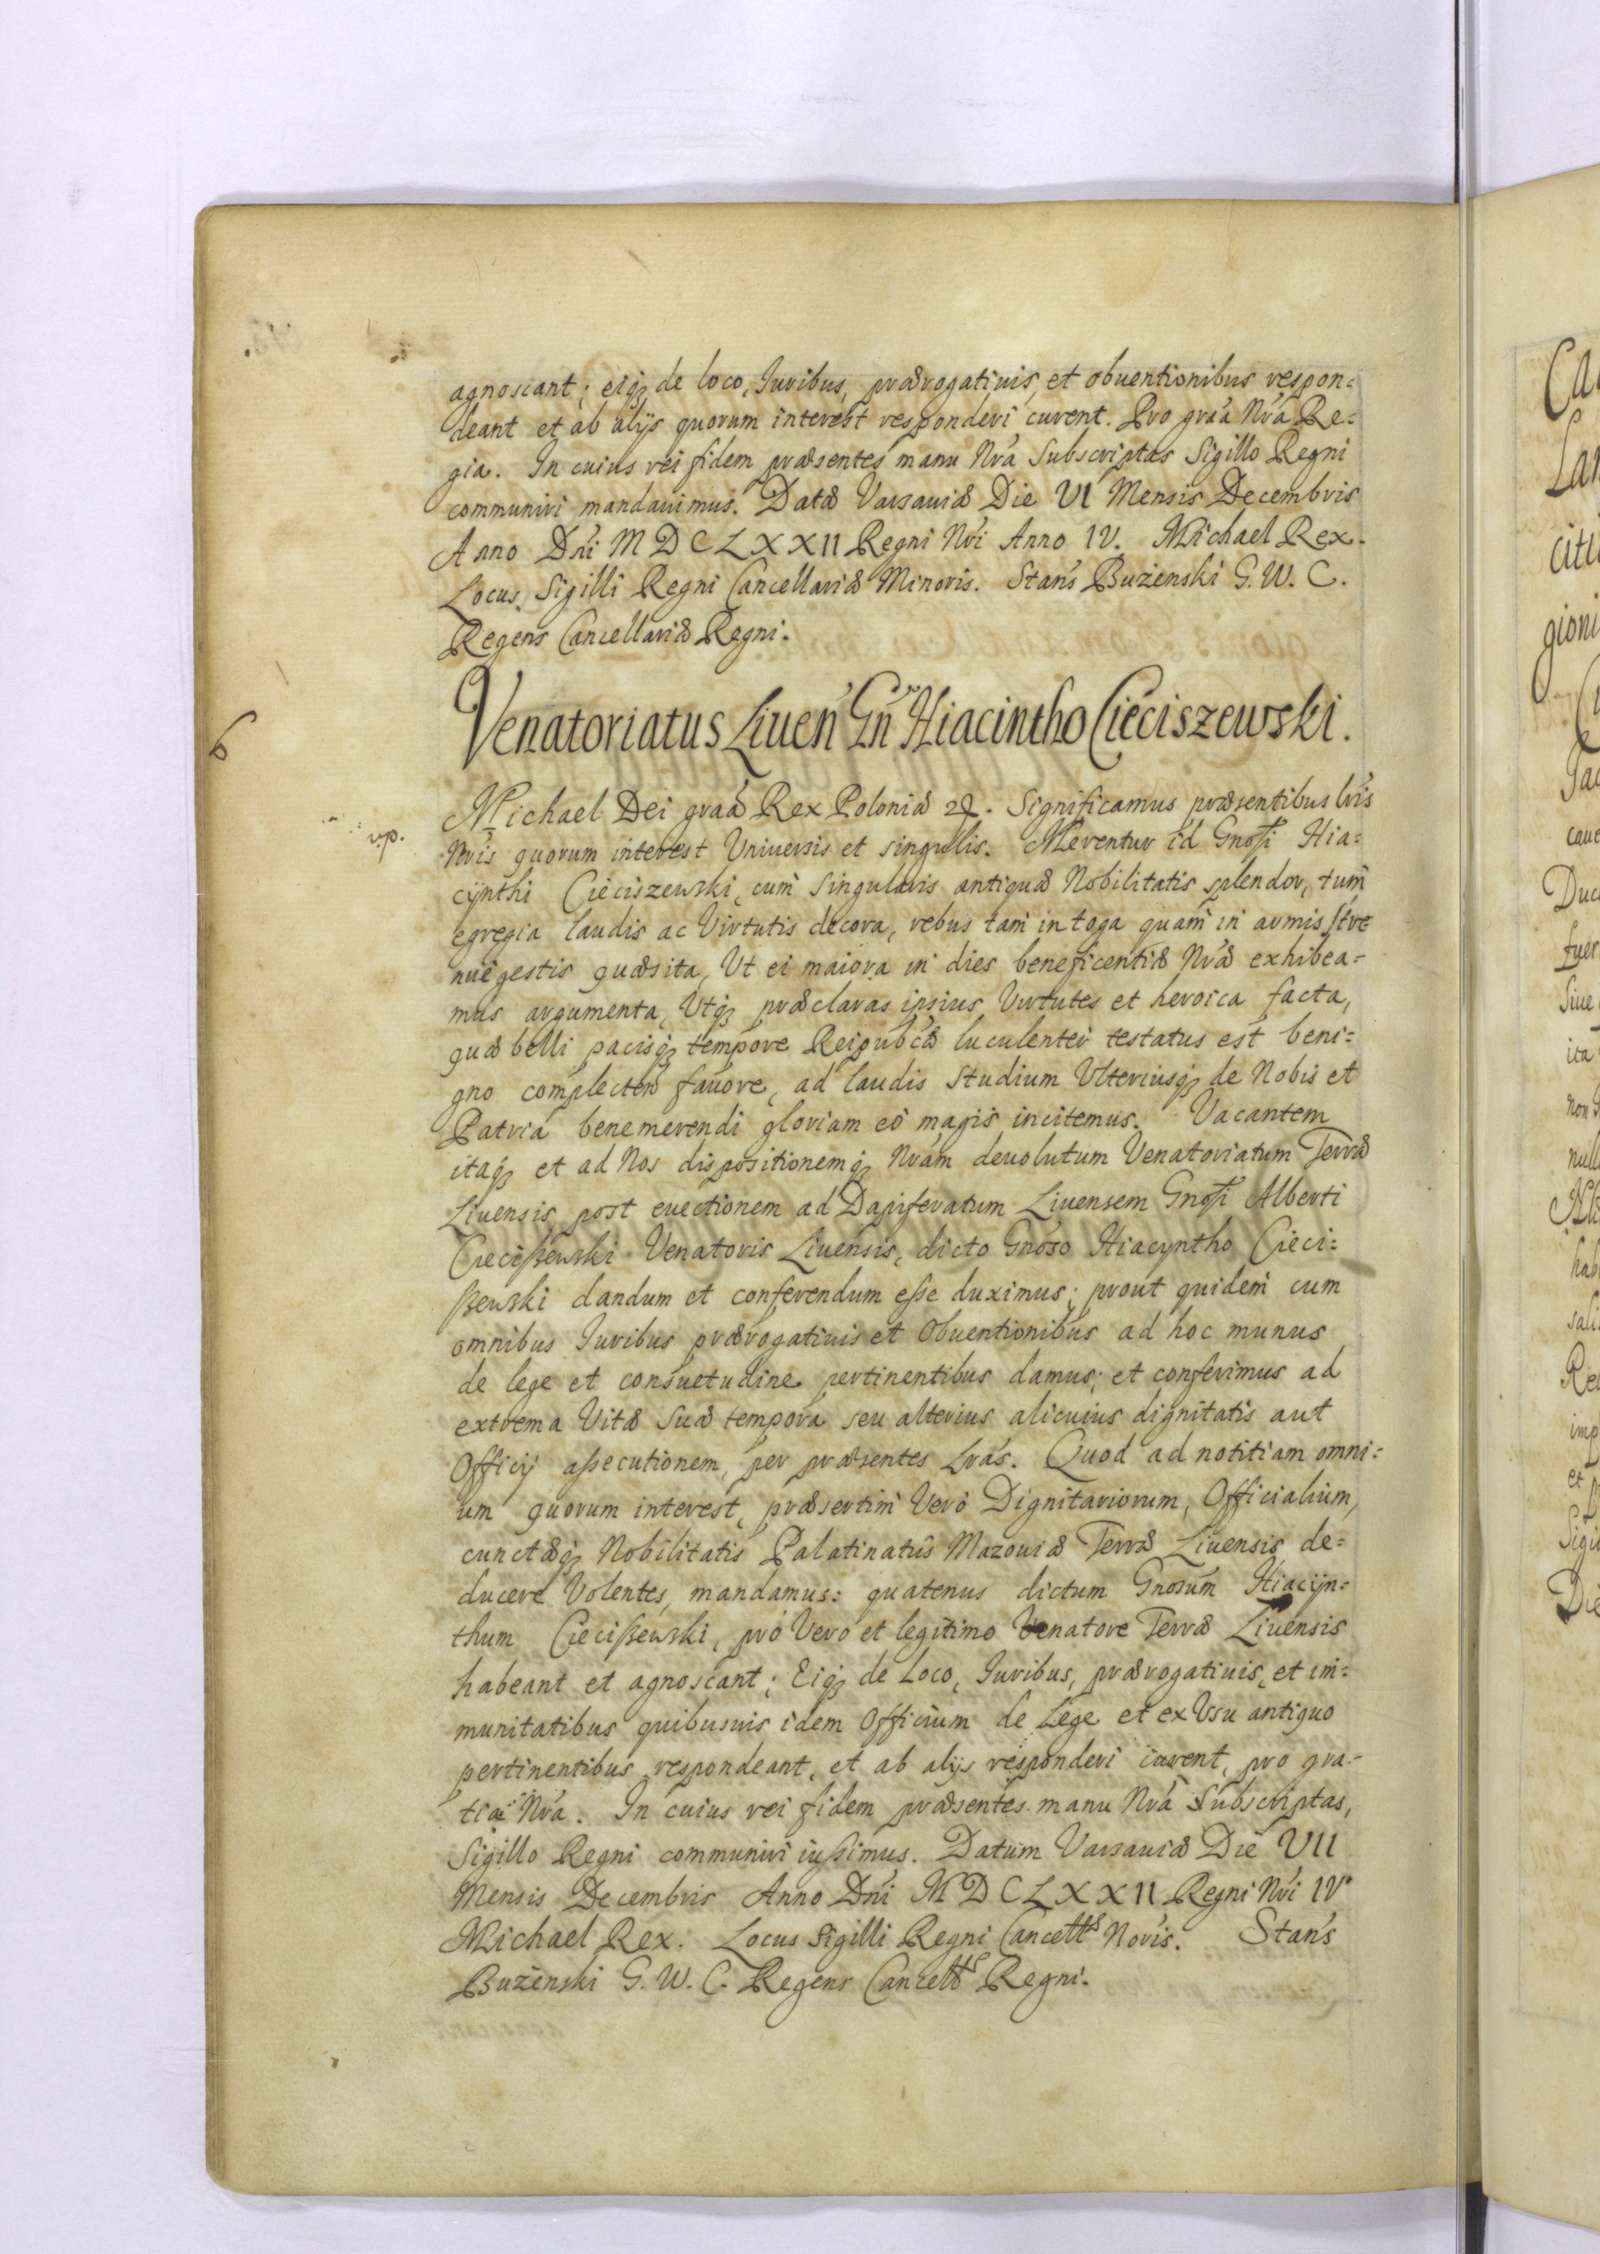 agnoscant; eiq₃ de loco, Iuribus, prærogatiuis, et obuentionibus respon=
deant et ab alijs quorum interest responderi curent. Pro gra͞a Nr͞a Re=
gia. In cuius rei fidem præsentes manu Nr͞a Subscriptas Sigillo Regni
communiri mandauimus. Datæ Varsauiæ Die VI Mensis Decembris
Anno Dn͞i MDCLXXII Regni Nr͞i Anno IV. Michael Rex.
Locus Sigilli Regni Cancellariæ Minoris. Stan͞s Bużenski G. W. C.
Regens Cancellariæ Regni.
Venatoriatus Liuen͞ Gn͞ Hiacintho Cieciszewski.
Michael Dei gra͞a Rex Poloniæ &. Significamus præsentibus lr͞is
vp.
Nr͞is quorum interest Vniuersis et singulis. Merentur id Gnosi Hia=
cynthi Cieciszewski, cum singularis antiquæ Nobilitatis splendor, tum
egregia laudis ac Virtutis decora, rebus tam in toga quam in armis stre
nuè gestis quæsita, Vt ei maiora in dies beneficentiæ Nr͞æ exhibea=
mus argumenta, Vtq₃ præclaras ipsius Virtutes et heroica facta,
quæ belli pacisq₃ tempore Reipub͞cæ luculenter testatus est beni=
gno complecten͞ fauore, ad laudis studium Vlteriusq₃ de Nobis et
Patria benemerendi gloriam eò magis incitemus. Vacantem
itaq₃ et ad Nos dispositionemq₃ Nr͞am deuolutum Venatoriatum Terræ
Liuensis, post euectionem ad Dapiferatum Liuensem Gnosi Alberti
Ciecißewski Venatoris Liuensis, dicto Gnoso Hiacyntho Cieci=
ßewski dandum et conferendum esse duximus; prout quidem cum
omnibus Iuribus prærogatiuis et Obuentionibus ad hoc munus
de lege et consuetudine pertinentibus damus; et conferimus ad
extrema Vitæ suæ tempora seu alterius alicuius dignitatis aut
Officij assecutionem, per præsentes Lr͞as. Quod ad notitiam omni=
um quorum interest, præsertim Verò Dignitariorum, Officialium,
cunctæq₃ Nobilitatis Palatinatûs Mazouiæ Terræ Liuensis de=
ducere Volentes, mandamus: quatenus dictum Gnosum Hiacijn=
thum Ciecißewski, pro Vero et legitimo Venatore Terræ Liuensis
habeant et agnoscant; Eiq₃ de Loco, Iuribus, prærogatiuis, et im=
munitatibus quibusuis idem Officium de Lege et ex Vsu antiquo
pertinentibus respondeant, et ab alijs responderi curent, pro gra=
tia Nr͞a. In cuius rei fidem præsentes manu Nr͞a Subscriptas,
Sigillo Regni communiri iussimus. Datum Varsauiæ Die VII
Mensis Decembris Anno Dn͞i MDCLXXII Regni Nr͞i IV
Michael Rex. Locus Sigilli Regni Cancellæ Noris. Stan͞s
Bużenski G. W. C. Regens Cancellæ Regni.